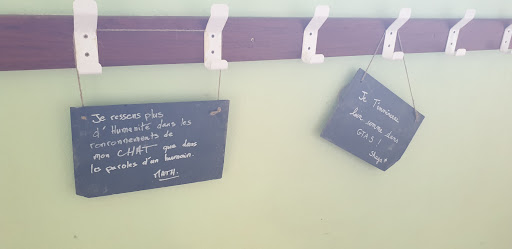 Je ressens plus
d'Humanité dans les
ronronnements de
mon CHAT que dans
les paroles d'un humain.
MATH.
Je
dans
GTA5 !